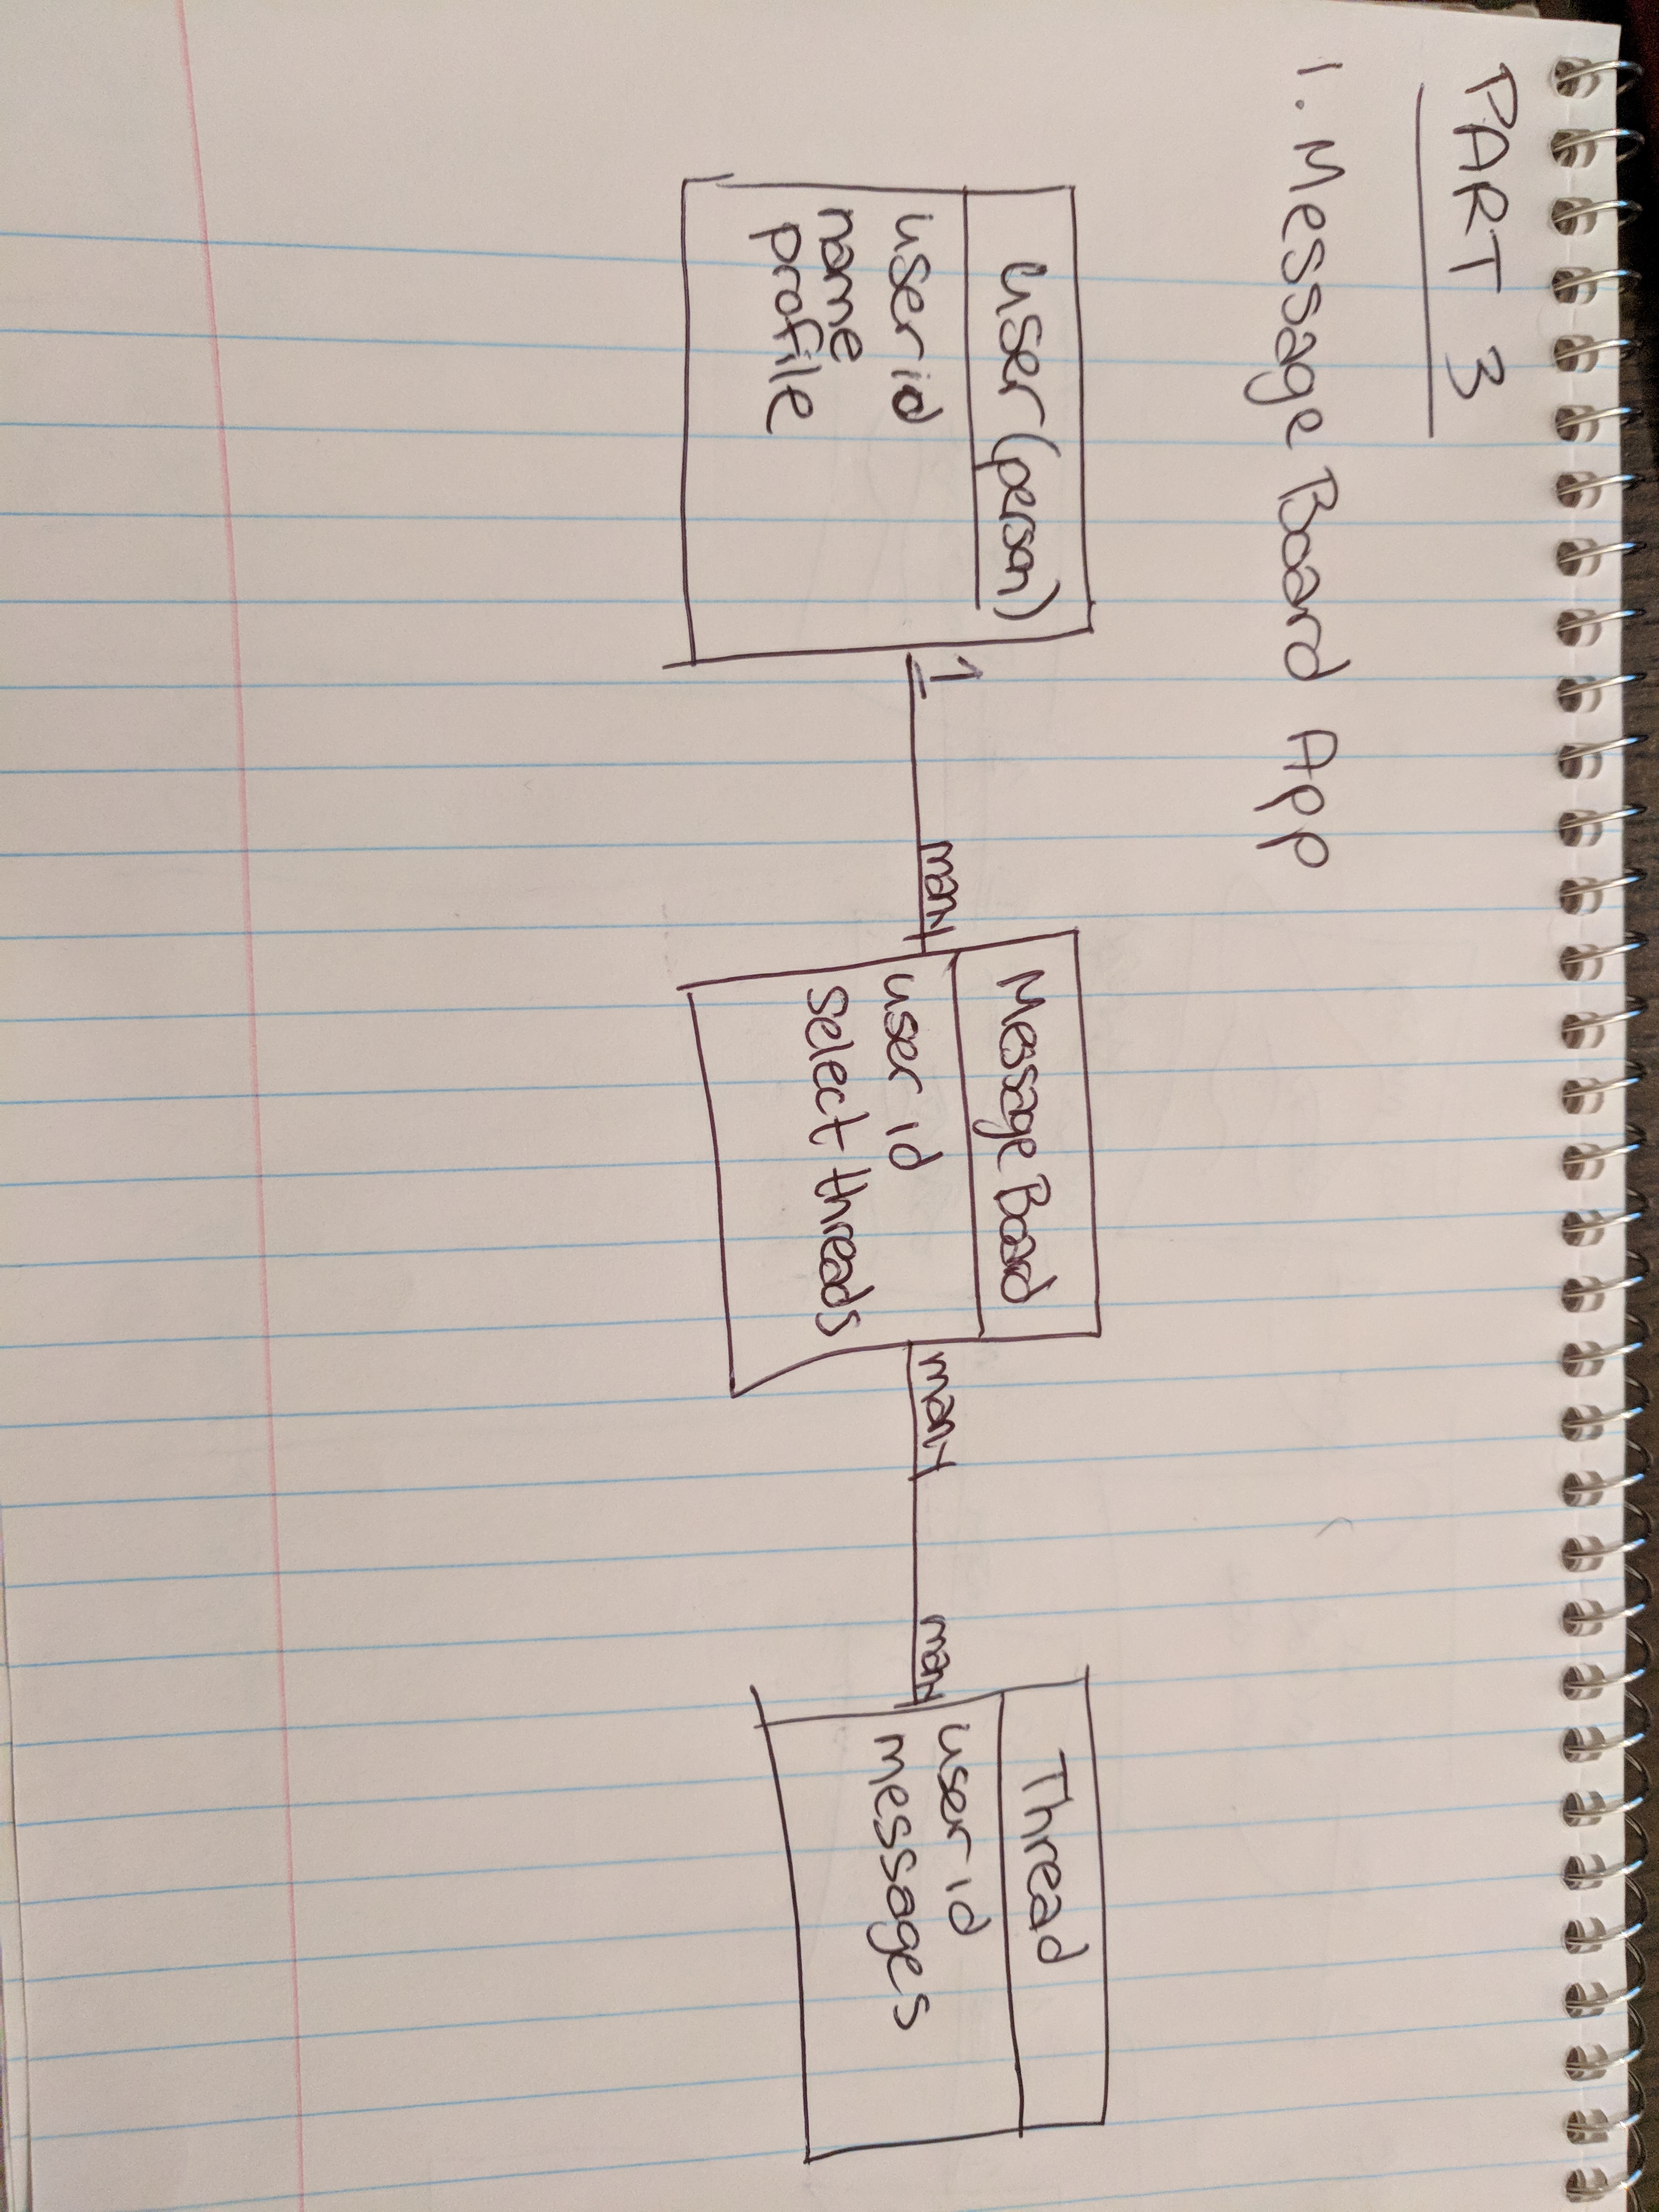 PART 3
1. Message Board App
user (person)
user id
name
profile
1
many
Message Board
user id
select threads
many
many
Thread
user id
messages